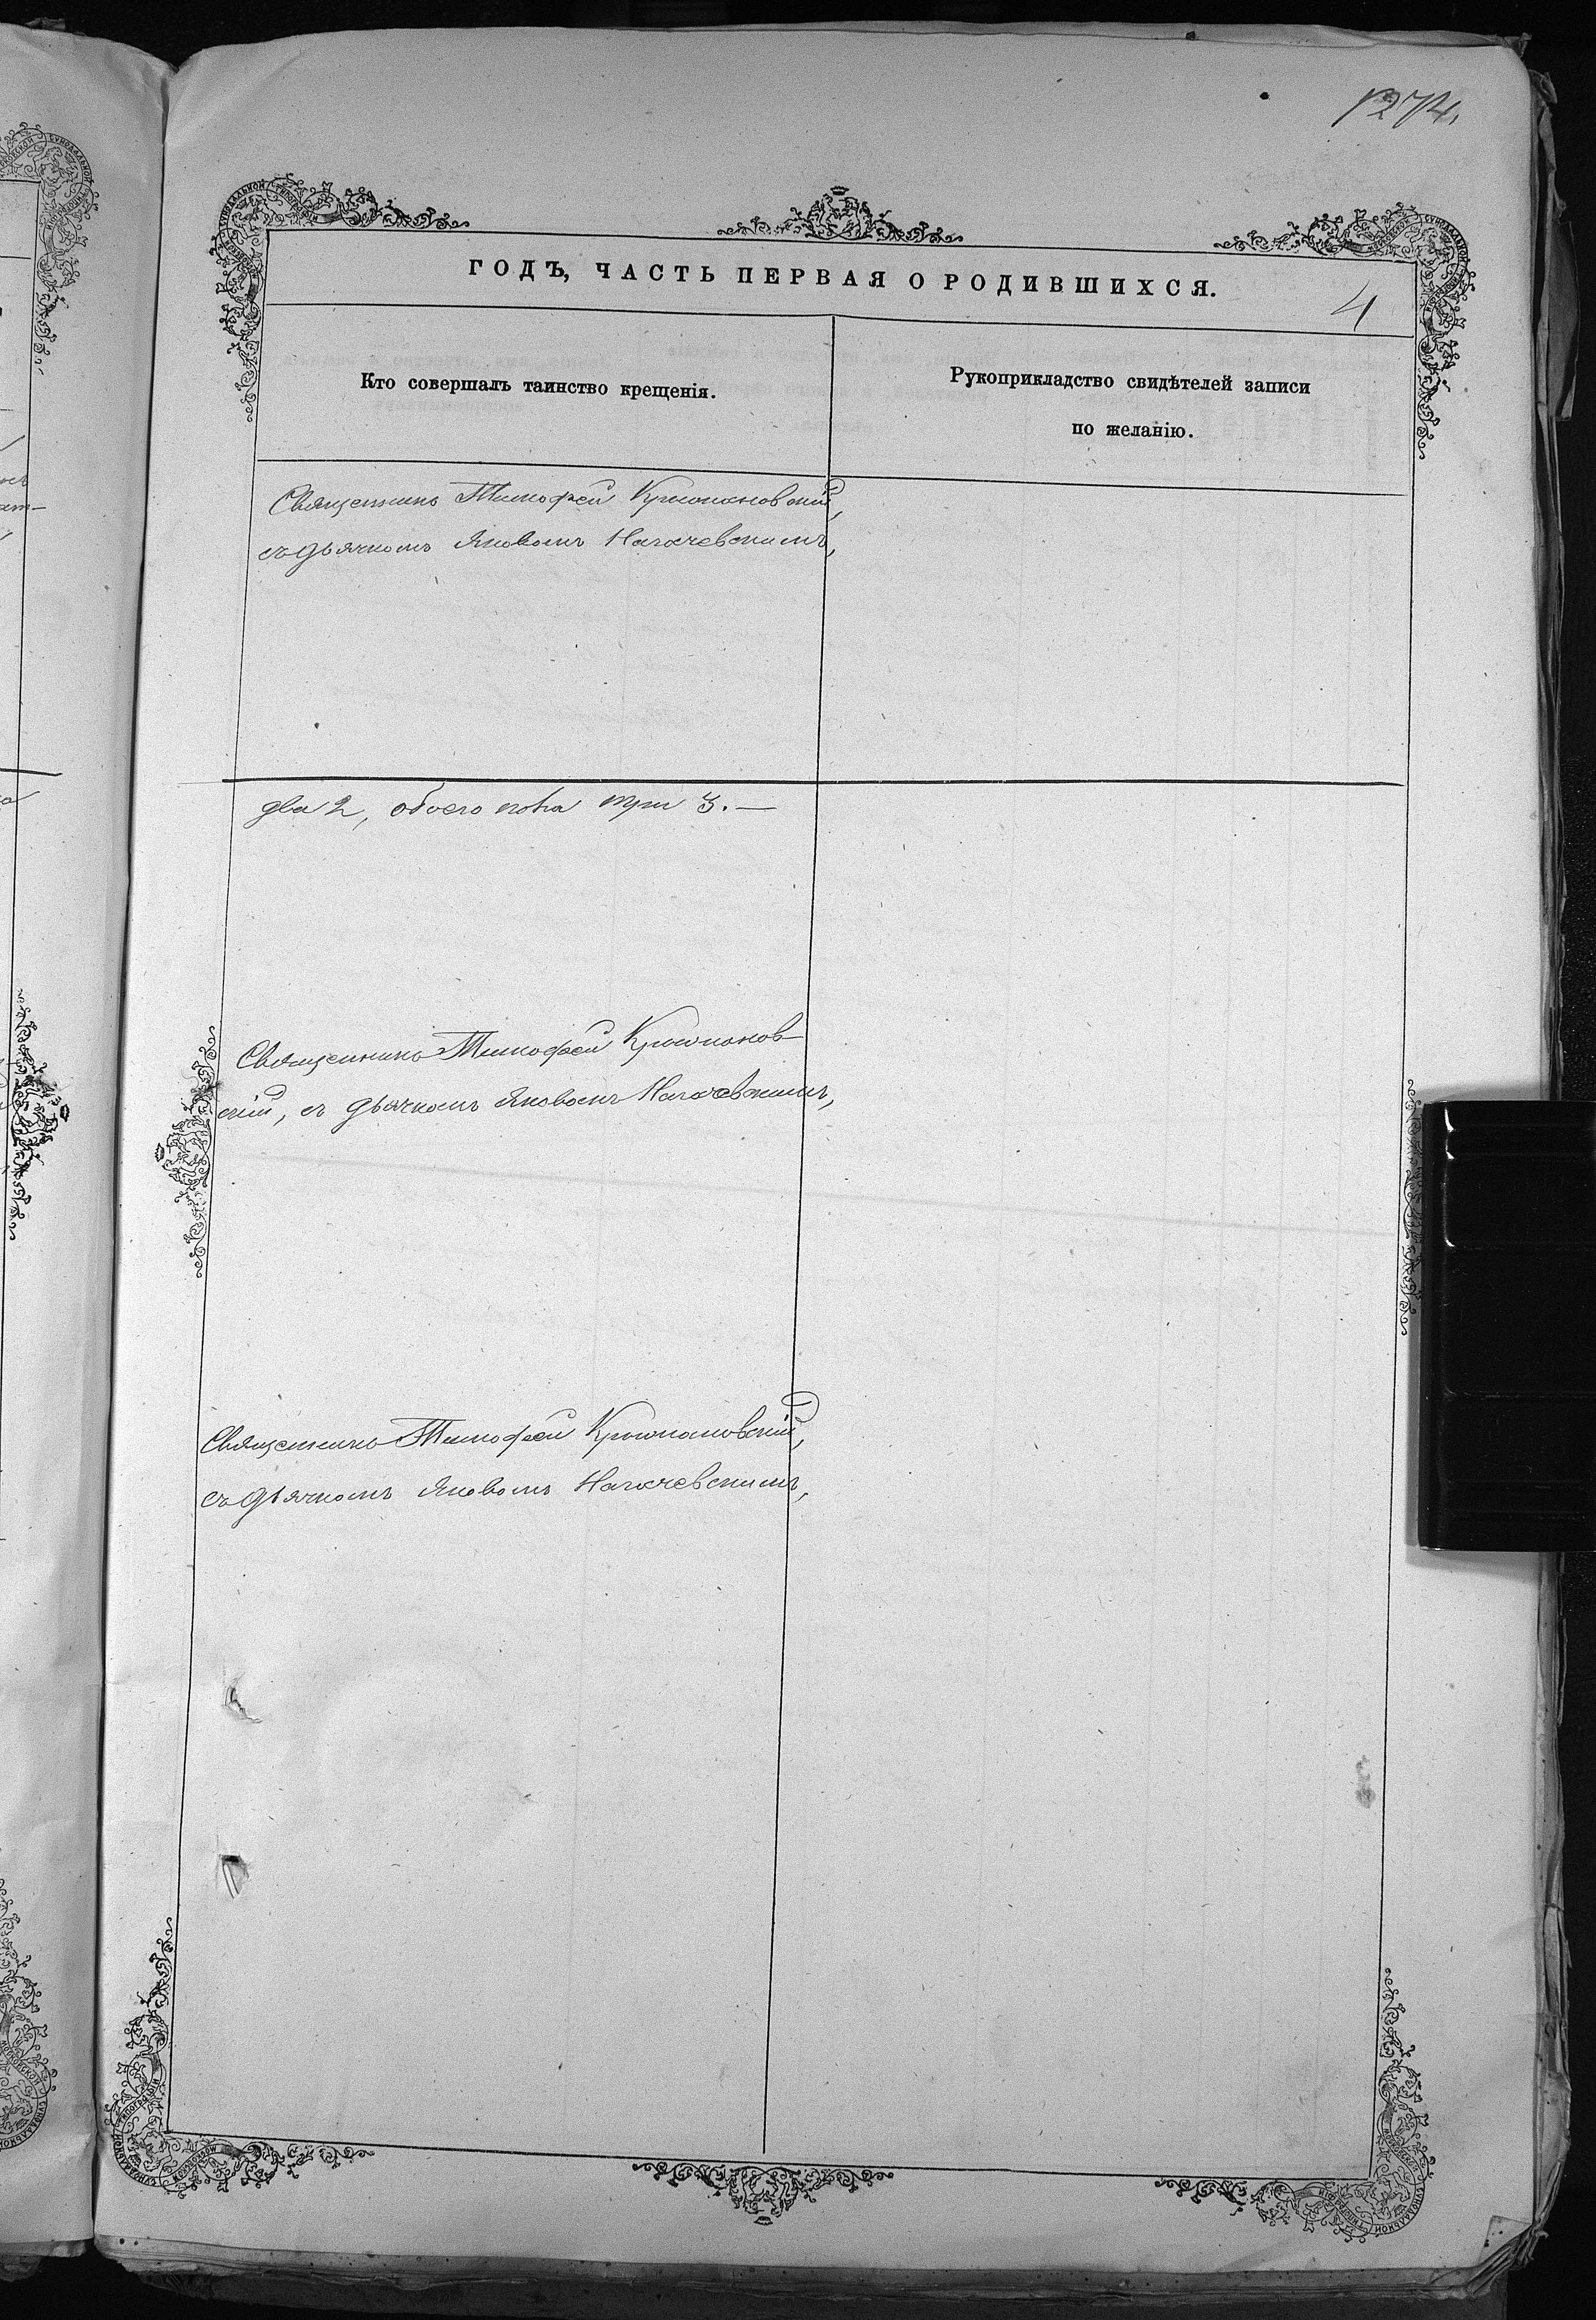 1274.
ГОДЪ, ЧАСТЬ ПЕРВАЯ О РОДИВШИХСЯ.
4
Кто совершалъ таинство крещенія.
Рукоприкладство свидѣтелей записи
по желанію.
Священникъ Тимофей
съ дьячкомъ Яковомъ Нагачевскимъ,
два 2, обоего пола три 3. —
Священникъ Тимофей
скій, съ дьячкомъ Яковомъ Нагачевскимъ,
Священникъ Тимофей
съ дьячкомъ Яковомъ Нагачевскимъ,